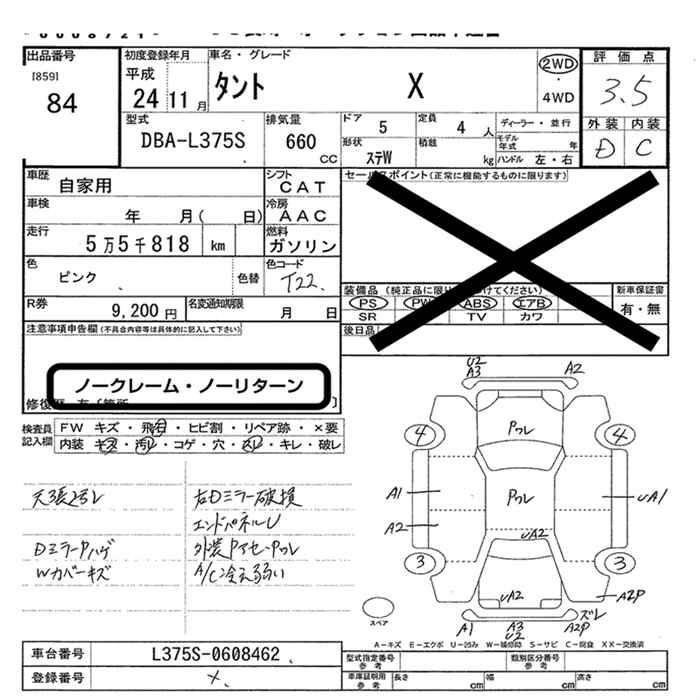 出品番号
[859]
84
初度登録年月
平成
24 11 月
車名・グレード
タント X
2WD
・
4WD
評価点
3.5
外装 内装
D C
型式
DBA-L375S
排気量
660 CC
ドア 5
定員 4 人
ディーラー・並行
形状 ステW
積載 kg
モデル年式 年
ハンドル 左・右
車歴
自家用
シフト
CAT
セールスポイント(正常に機能するものに限ります)
車検
年 月( 日)
冷房
AAC
走行
5万5千818 km
燃料
ガソリン
色
ピンク
色替
色コード
T22
装備品(純正品に限り けてください)
PS PW ABS エアB
SR TV カワ
新車保証書
有・無
R券
9,200円
名変通知期限
月 日
後日品
注意事項申告欄(不具合内容等は具体的に記入して下さい)
ノークレーム・ノーリターン
修復歴 有〔箇所 〕
検査員
記入欄
FW キズ・飛石・ヒビ割・リペア跡・×要
内装 キズ・汚レ・コゲ・穴・スレ・キレ・破レ
右Dミラー破損
エンドパネルU
DミラーPハゲ
外装Pアセ・Pワレ
Wカバーキズ
A/C冷え弱い
U2
A3
A2
Pワレ
4 4
A1
Pワレ
UA1
A2
UA2
3 3
UA2
A2P
ズレ
A1
A3
U2
A2P
スペア
A-キズ E-エクボ U-凹み W-補修跡 S-サビ C-腐食 XX-交換済
車台番号
L375S-0608462
型式指定番号
参考
類別区分番号
参考
登録番号
×
車庫証明用
参考
長さ cm
幅 cm
高さ cm